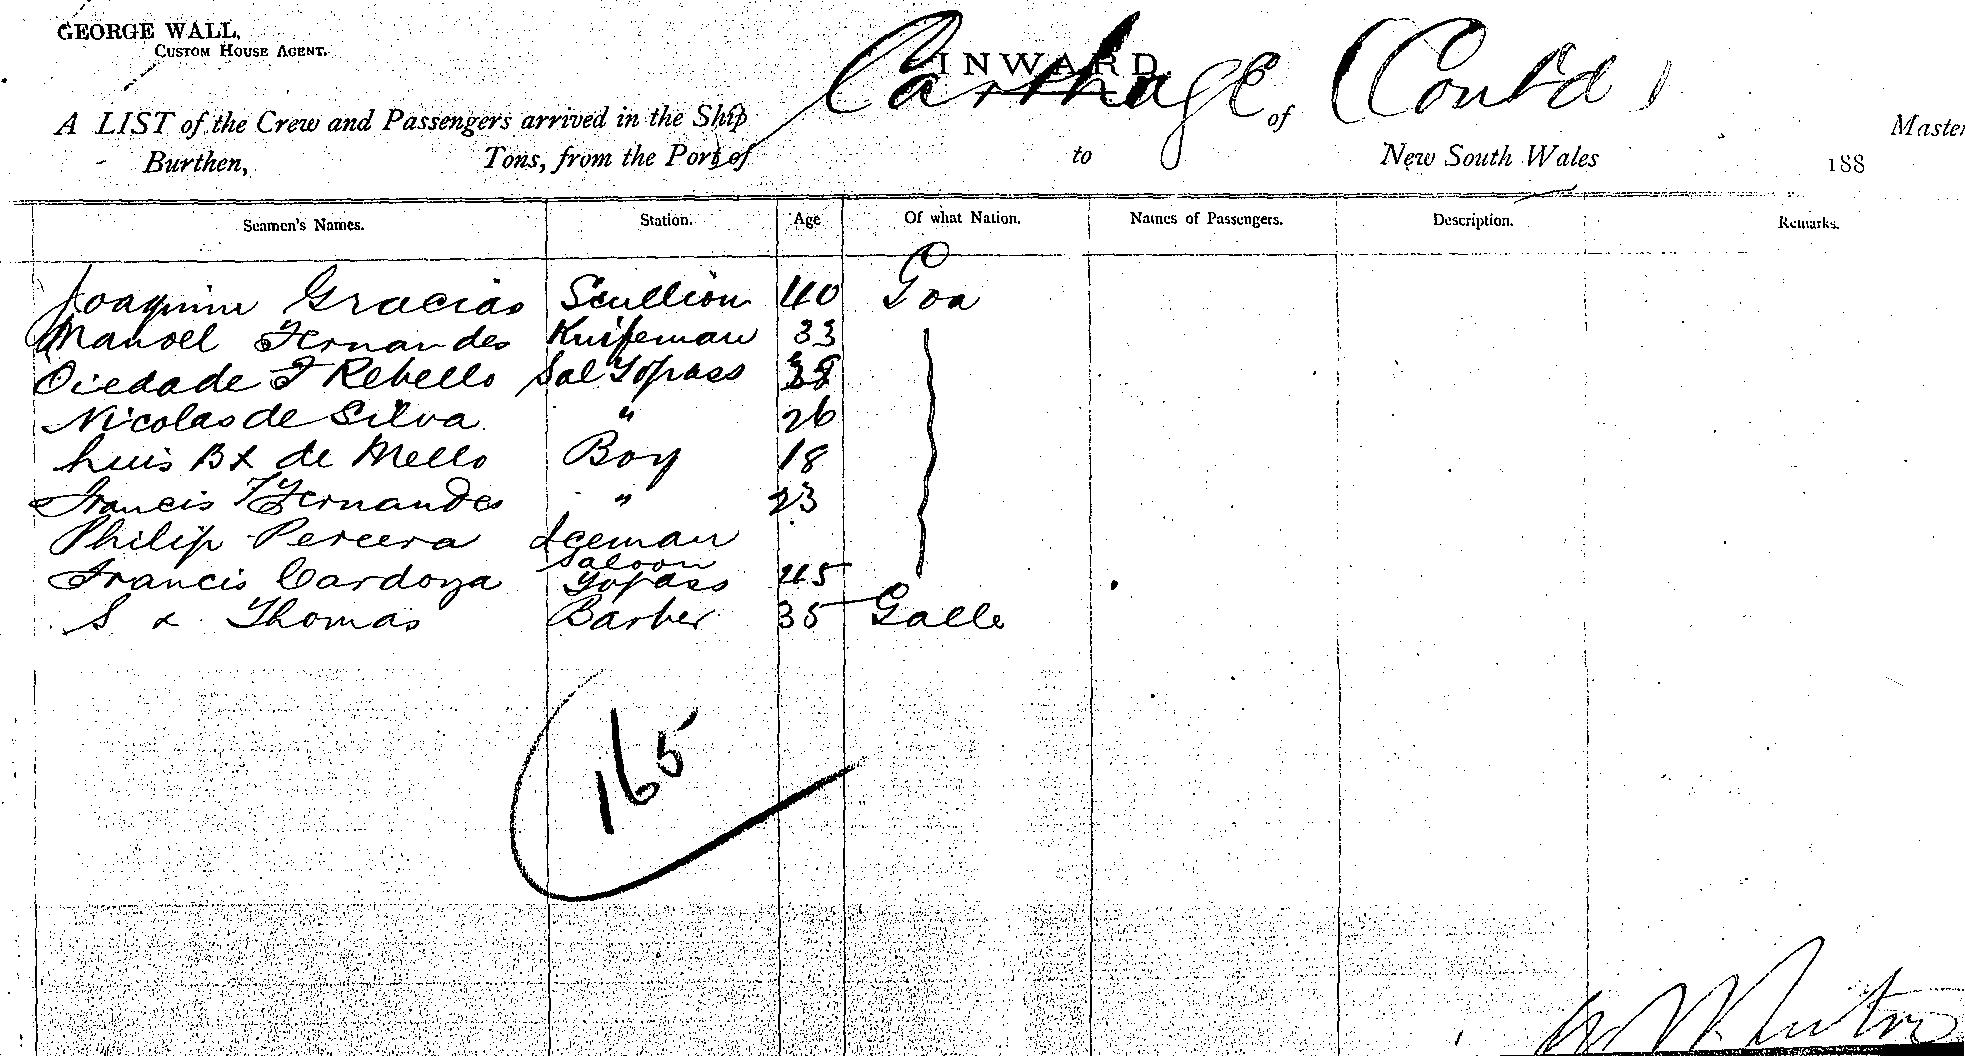 GEORGE WALL,
CUSTOM HOUSE AGENT.
INWARD.
Carthage (Cont'd)
A LIST of the Crew and Passengers arrived in the Ship of Master
Burthen, Tons, from the Port of to New South Wales 188
Seamen's Names. Station. Age Of what Nation. Names of Passengers. Description. Remarks.
Joaquim Gracias Scullion 40 Goa
Manoel Fernandes Knifeman 33
Piedade F Rebello Sal Topass
Nicolas de Silva " 26
Luis Bx de Mello Boy 18
Francis F Fernandes " 23
Philip Pereera Iceman
Francis Cardoza Saloon Topass 45
S x Thomas Barber 35 Galle
165